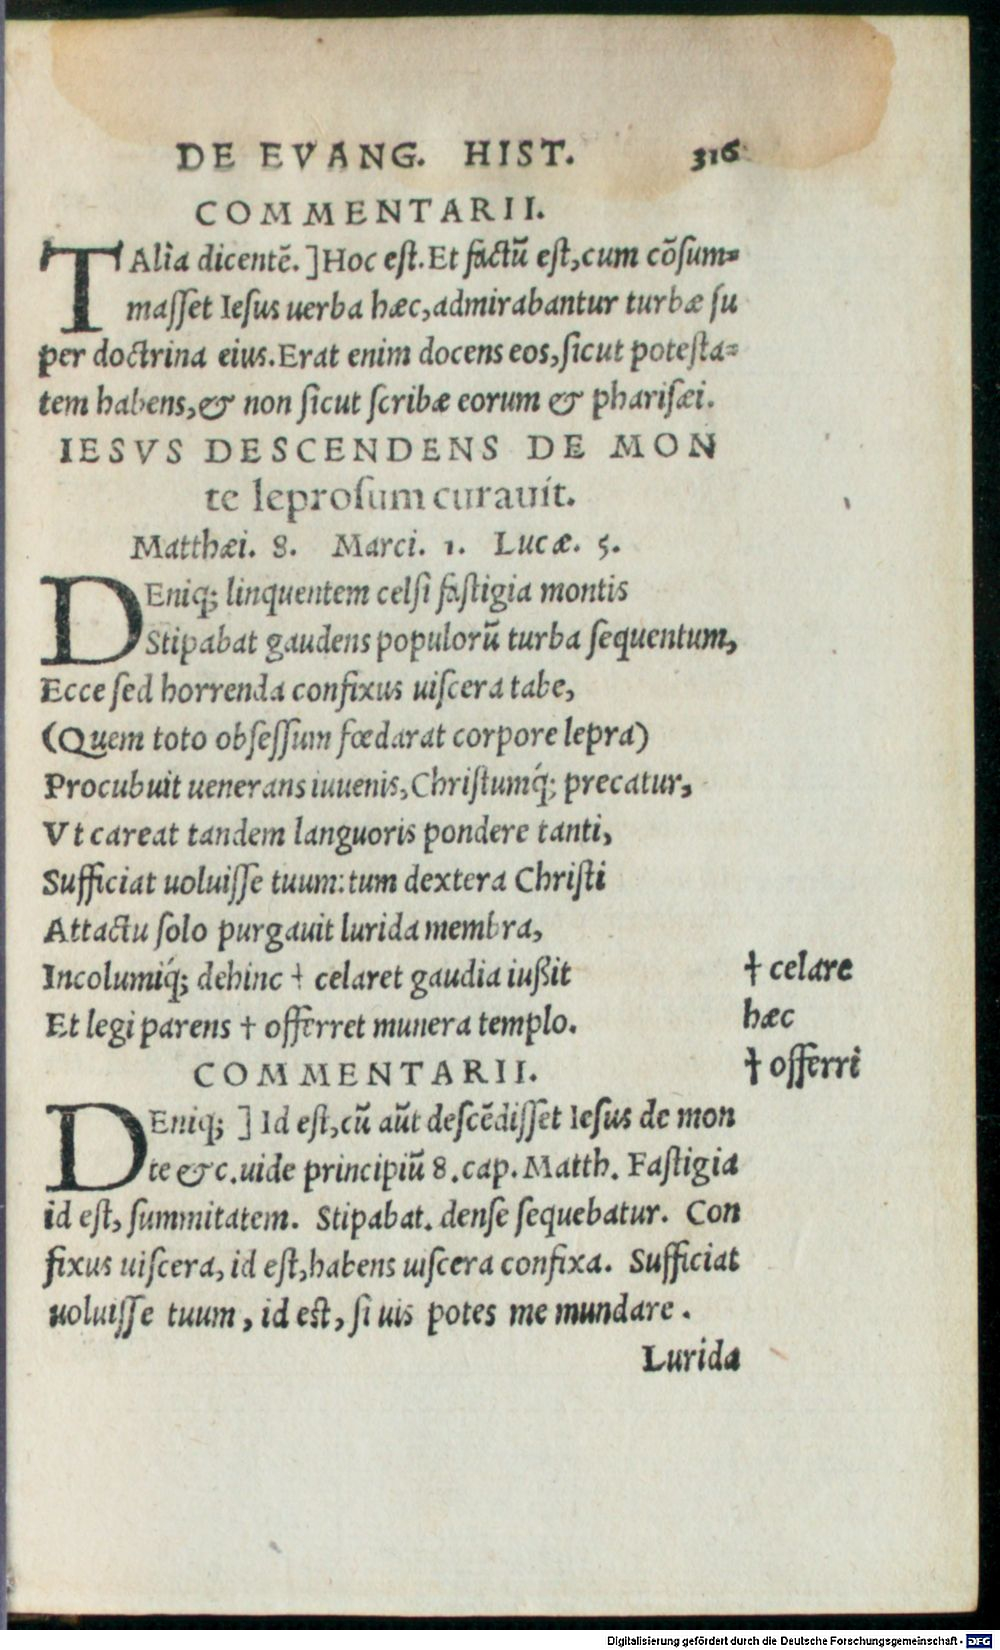 DE EVANG. HIST. 316
COMMENTARII.
TAlia dicentē.] Hoc est. Et factū est, cum cōsum=
masset Iesus uerba hæc, admirabantur turbæ su
per doctrina eius. Erat enim docens eos, sicut potesta=
tem habens, & non sicut scribæ eorum & pharisæi.
IESVS DESCENDENS DE MON
te leprosum curauit.
Matthæi. 8. Marci. 1. Lucæ. 5.
DEniq; linquentem celsi fastigia montis
Stipabat gaudens populorū turba sequentum,
Ecce sed horrenda confixus uiscera tabe,
(Quem toto obsessum fœdarat corpore lepra)
Procubuit uenerans iuuenis, Christumq́; precatur,
Vt careat tandem languoris pondere tanti,
Sufficiat uoluisse tuum: tum dextera Christi
Attactu solo purgauit lurida membra,
Incolumiq́; dehinc † celaret gaudia iußit † celare
Et legi parens † offerret munera templo. hæc
† offerri
COMMENTARII.
DEniq; ] Id est, cū aūt descēdisset Iesus de mon
te &c. uide principiū 8. cap. Matth. Fastigia
id est, summitatem. Stipabat. dense sequebatur. Con
fixus uiscera, id est, habens uiscera confixa. Sufficiat
uoluisse tuum, id est, si uis potes me mundare.
Lurida
Digitalisierung gefördert durch die Deutsche Forschungsgemeinschaft - DFG